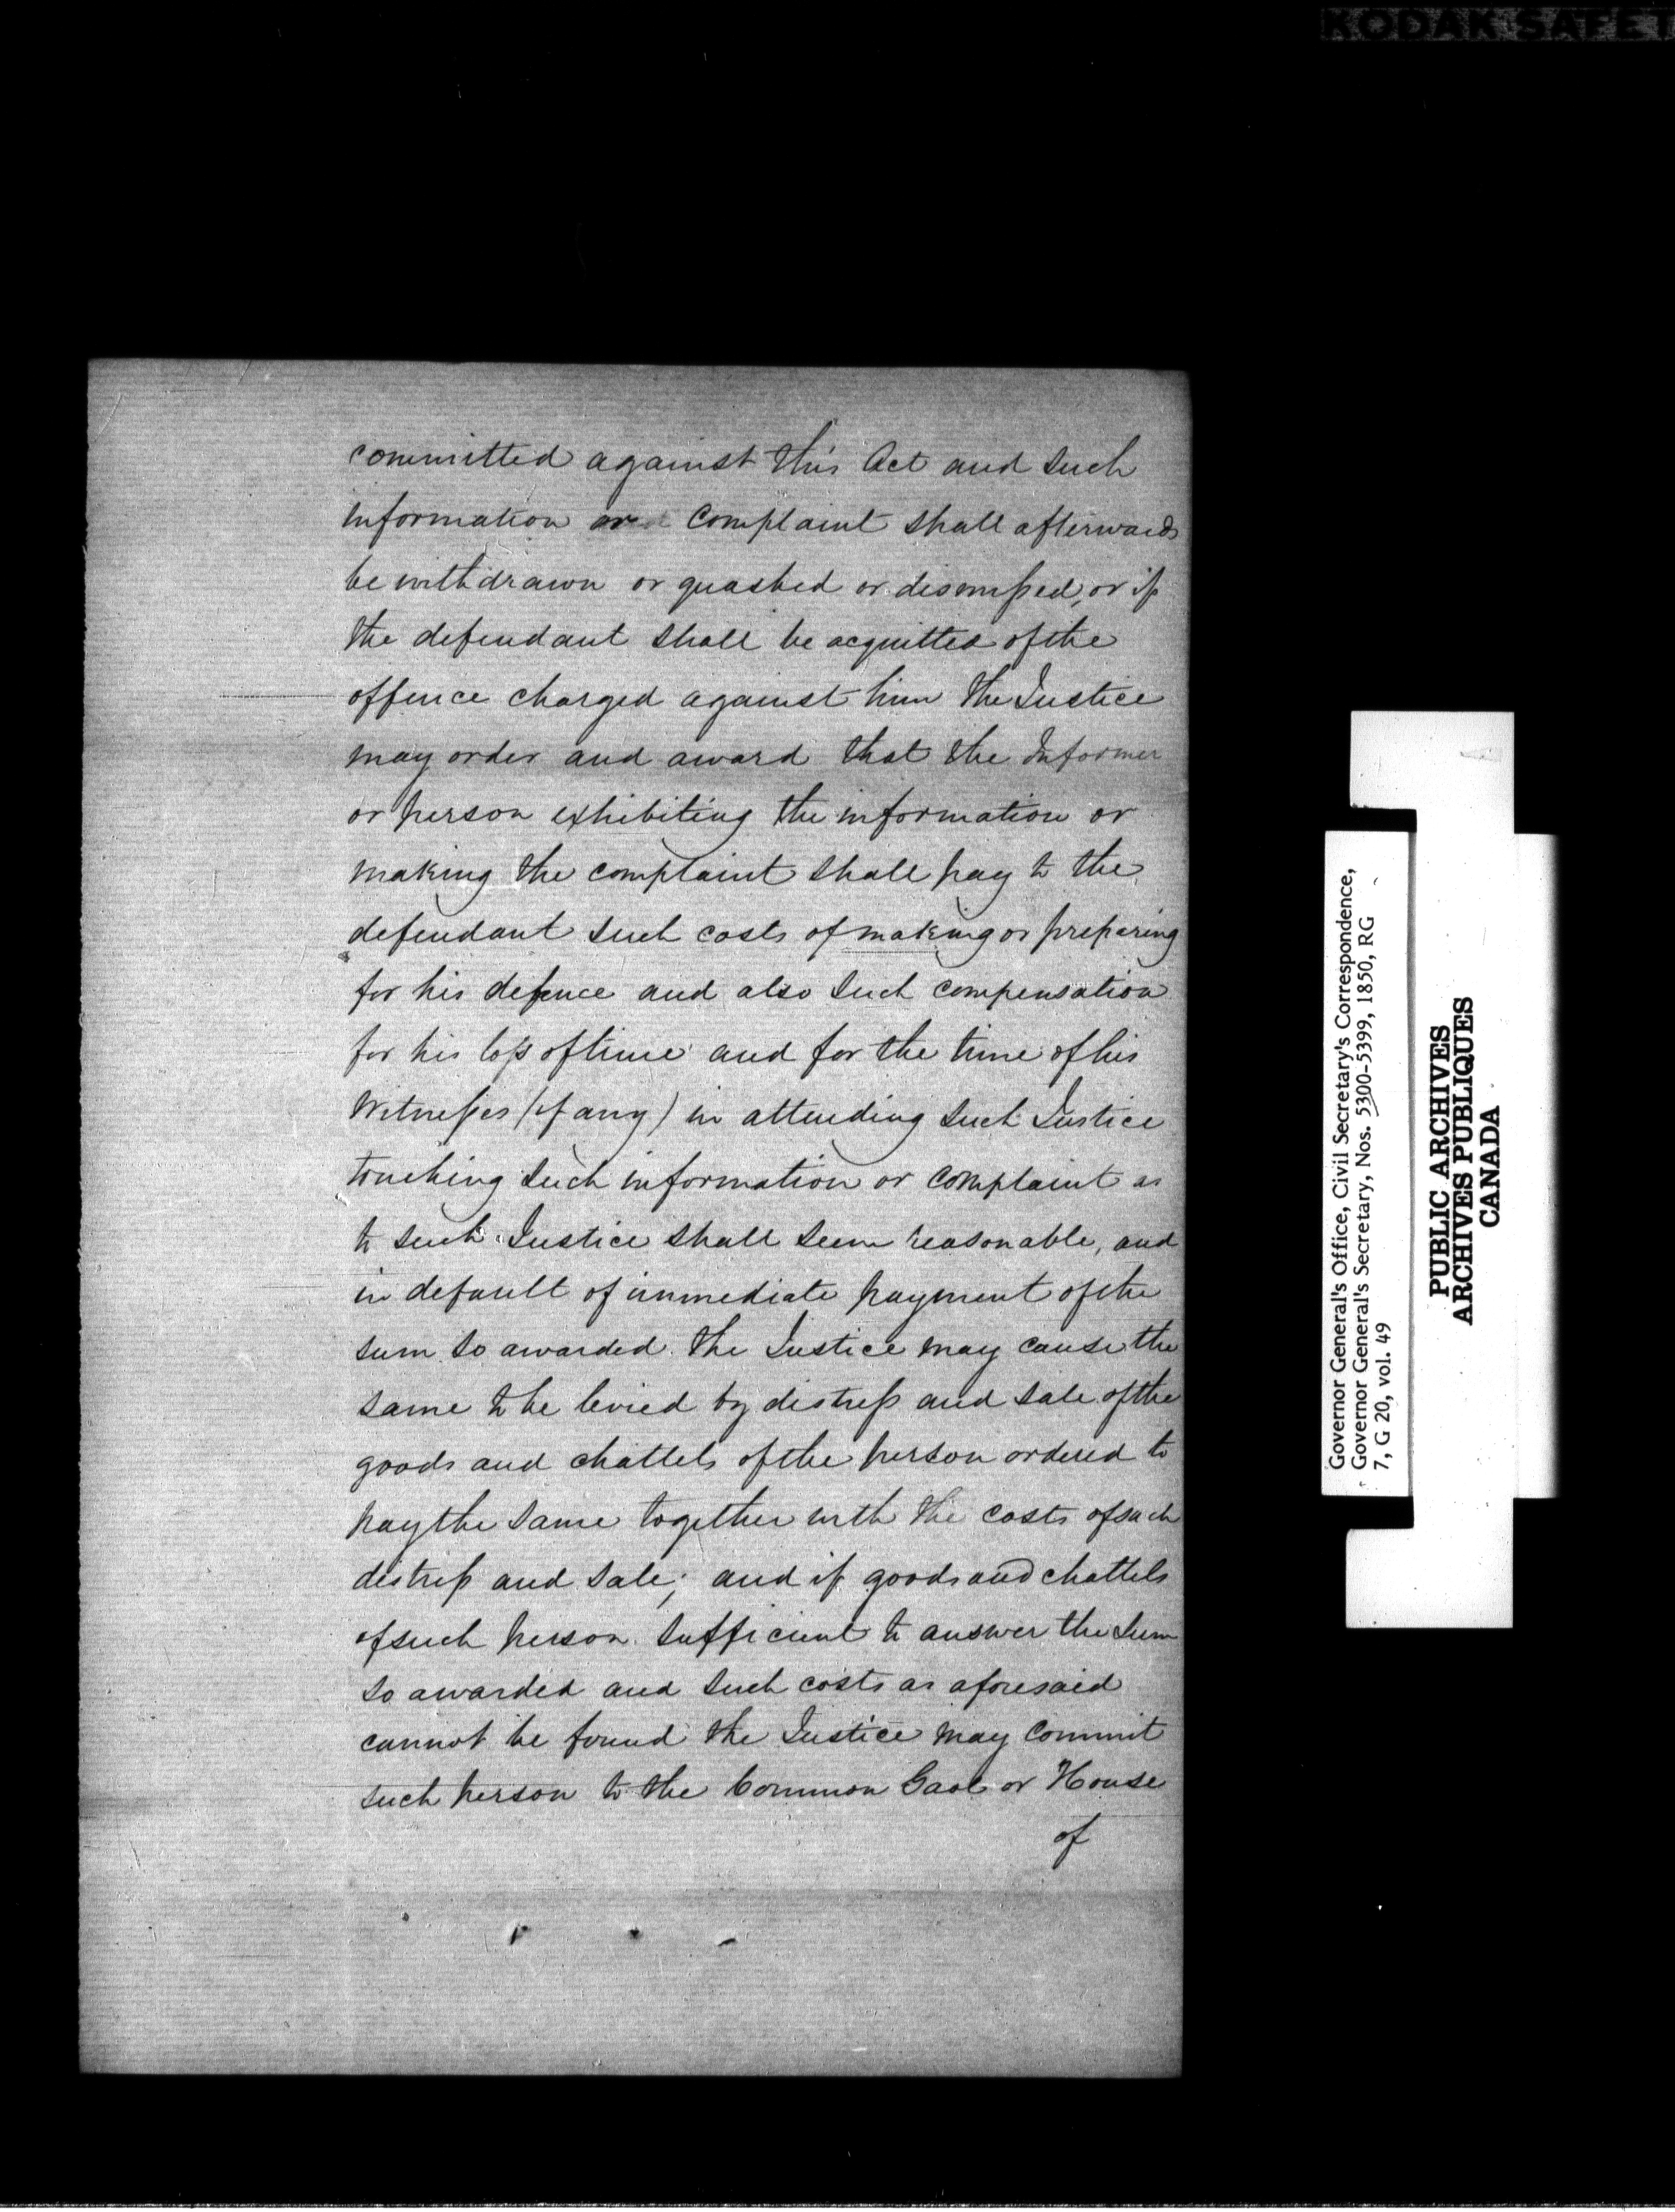 KODAK SAFET
committed against this Act and such
information or complaint shall afterwards
be withdrawn or quashed or dismissed, or if
the defendant shall be acquitted of the
offence charged against him the Justice
may order and award that the Informer
or person exhibiting the information or
making the complaint shall pay to the
defendant such costs of making or preparing
for his defence and also such compensation
for his loss of time and for the time of his
Witnesses (if any) in attending such Justice
touching such information or complaint as
to such Justice shall seem reasonable, and
in default of immediate payment of the
sum so awarded the Justice may cause the
same to be levied by distress and sale of the
goods and chattels of the person ordered to
pay the same together with the costs of such
distress and sale; and if goods and chattels
of such person sufficient to answer the sum
so awarded and such costs as aforesaid
cannot be found the Justice may commit
such person to the Common Gaol or House
of
Governor General's Office, Civil Secretary's Correspondence,
Governor General's Secretary, Nos. 5300-5399, 1850, RG
7, G 20, vol. 49
PUBLIC ARCHIVES
ARCHIVES PUBLIQUES
CANADA